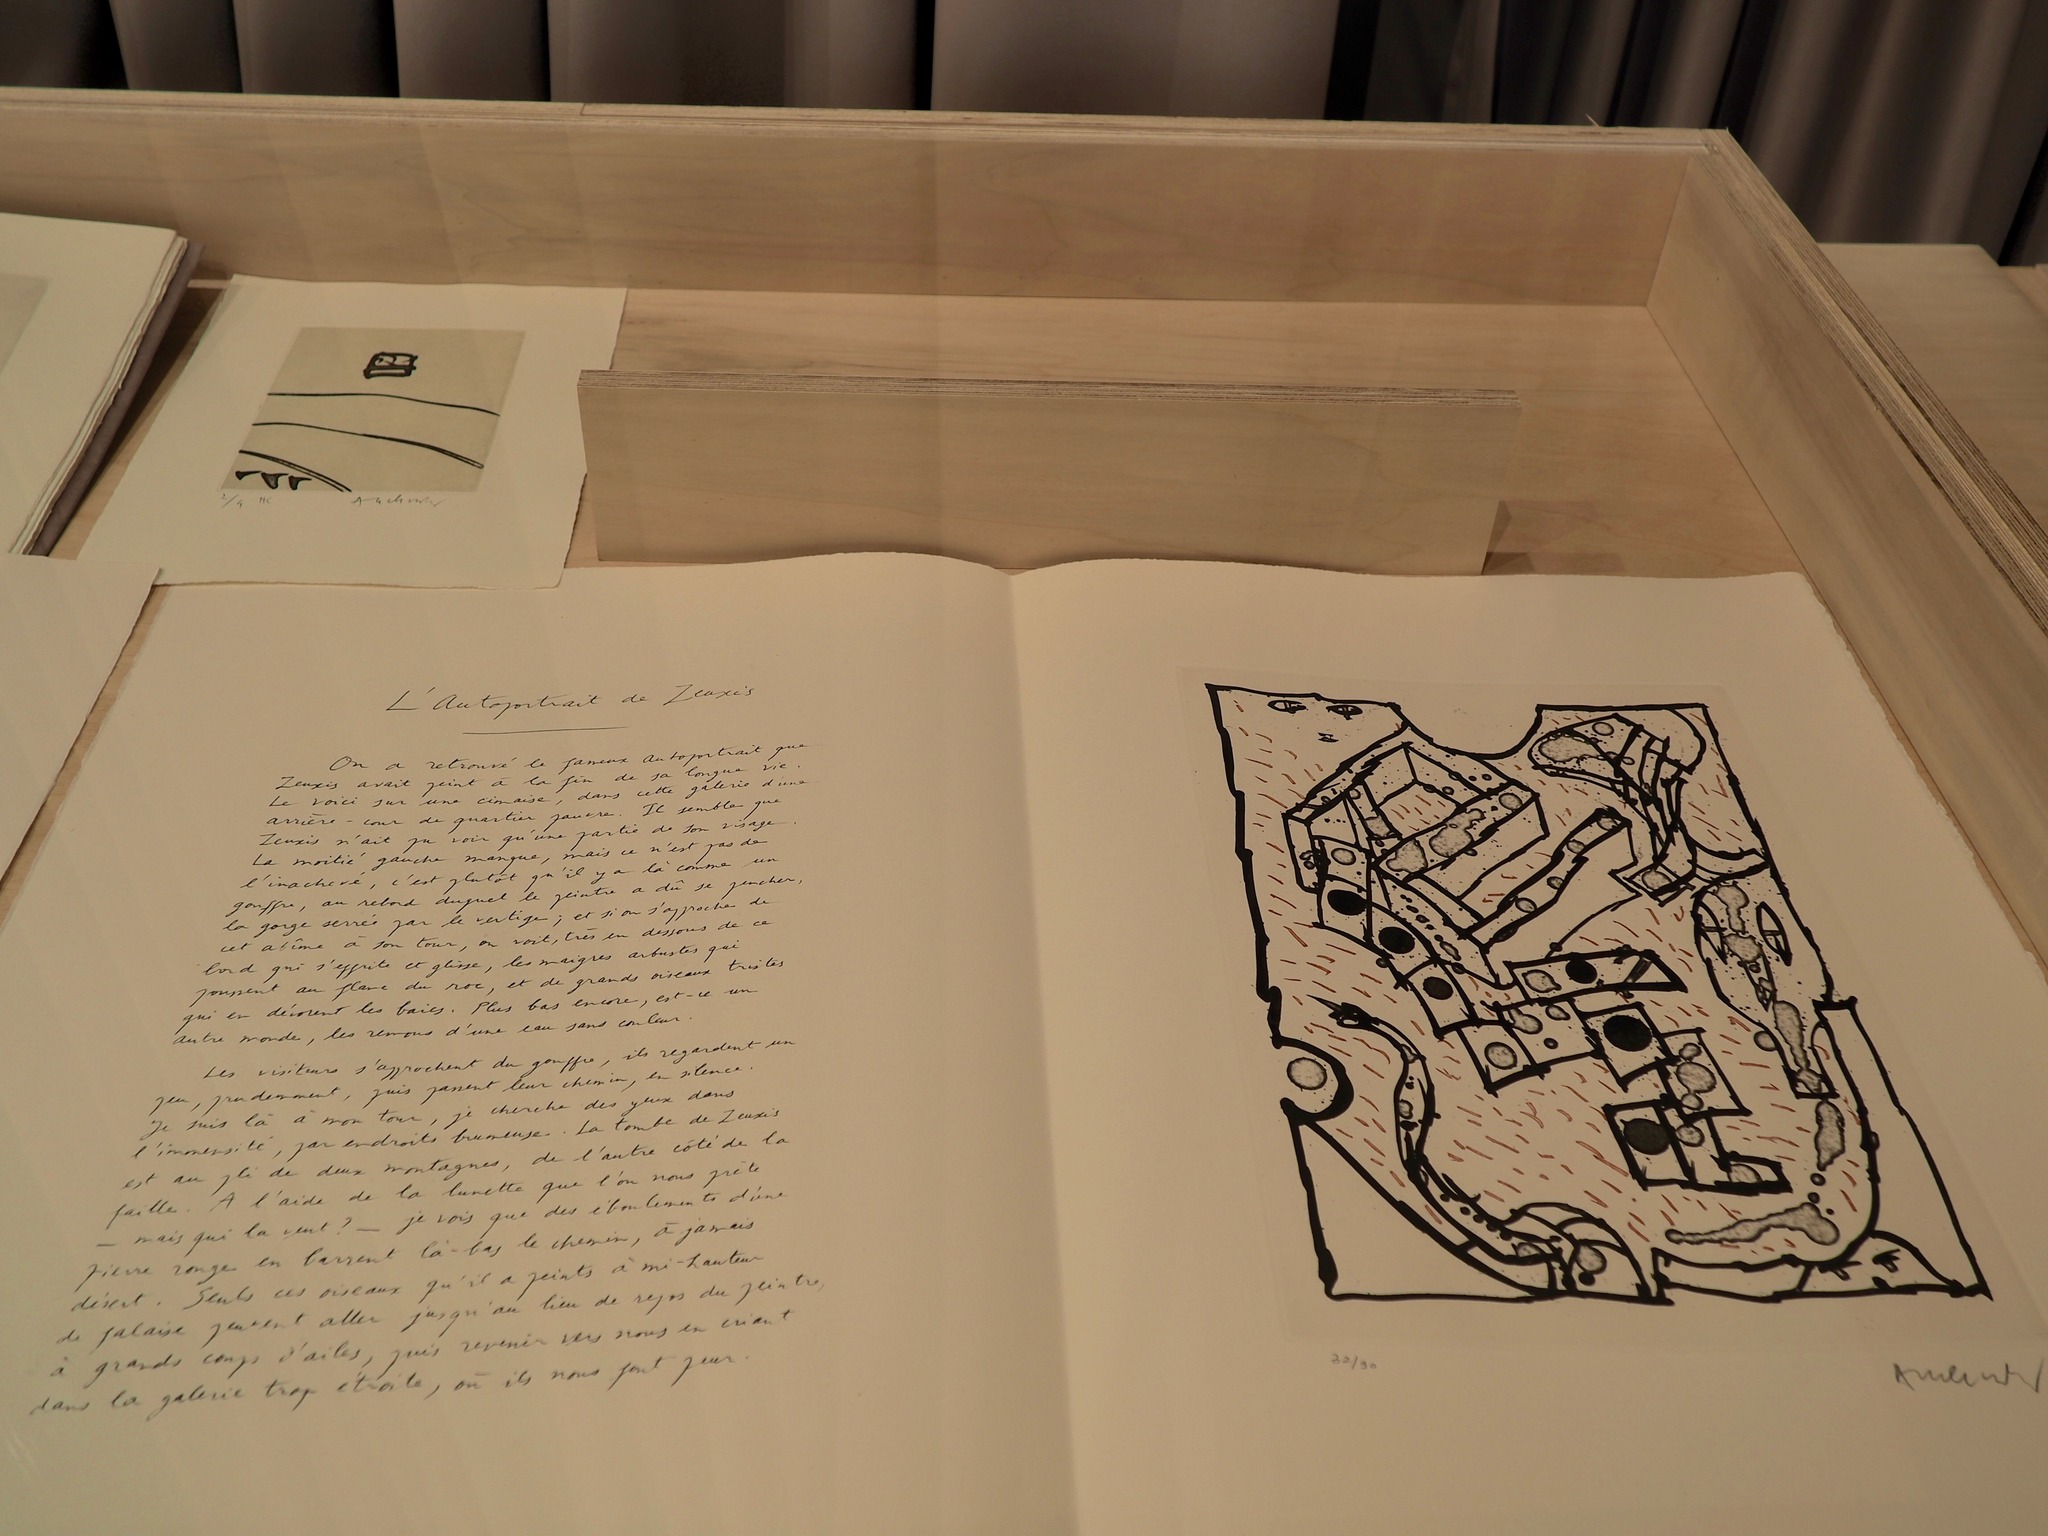 2/9 HC
Alechinsky
L'Autoportrait de Zeuxis
On a retrouvé le fameux autoportrait que
Zeuxis avait peint à la fin de sa longue vie.
Le voici sur une cimaise, dans cette galerie d'une
arrière-cour de quartier pauvre. Il semble que
Zeuxis n'ait pu voir qu'une partie de son visage.
La moitié gauche manque, mais ce n'est pas de
l'inachevé, c'est plutôt qu'il y a là comme un
gouffre, au rebord duquel le peintre a dû se pencher,
la gorge serrée par le vertige ; et si on s'approche de
cet abîme à son tour, on voit, très en dessous de ce
bord qui s'effrite et glisse, les maigres arbustes qui
poussent au flanc du roc, et de grands oiseaux tristes
qui en dévorent les baies. Plus bas encore, est-ce un
autre monde, les remous d'une eau sans couleur.
Les visiteurs s'approchent du gouffre, ils regardent un
peu, prudemment, puis passent leur chemin, en silence.
Je suis là à mon tour, je cherche des yeux dans
l'immensité, par endroits brumeuse. La tombe de Zeuxis
est au pli de deux montagnes, de l'autre côté de la
faille. A l'aide de la lunette que l'on nous prête
— mais qui la veut ? — je vois que des éboulements d'une
pierre rouge en barrent là-bas le chemin, à jamais
désert. Seuls ces oiseaux qu'il a peints à mi-hauteur
de falaise peuvent aller jusqu'au lieu de repos du peintre,
à grands coups d'ailes, puis revenir vers nous en criant
dans la galerie trop étroite, où ils nous font peur.
22/90
Alechinsky